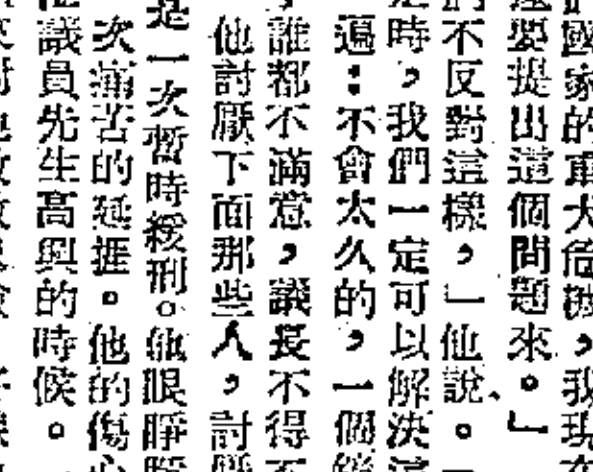 國家的重大危機，我現在
要提出這個問題來。」
們不反對這樣，」他說。
時，我們一定可以解決這
遍：不會太久的，一個
誰都不滿意，議長不得不
他討厭下面那些人，討厭
是一次暫時緩刑。他眼睜
次痛苦的延捱。他的傷心
議員先生高興的時候。